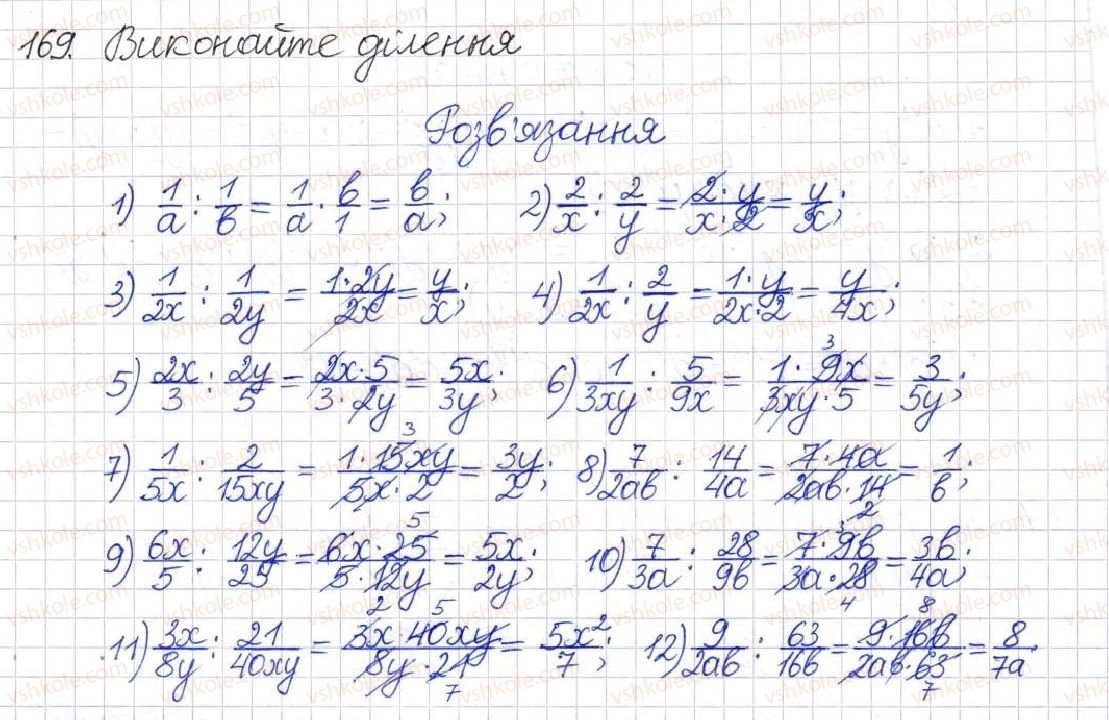 169. Виконайте ділення
Розв'язання
1) 1/a : 1/b = 1/a · b/1 = b/a; 2) 2/x : 2/y = 2·y/x·2 = y/x;
3) 1/2x : 1/2y = 1·2y/2x = y/x; 4) 1/2x : 2/y = 1·y/2x·2 = y/4x;
5) 2x/3 : 2y/5 = 2x·5/3·2y = 5x/3y; 6) 1/3xy : 5/9x = 1·9x/3xy·5 = 3/5y;
7) 1/5x : 2/15xy = 1·15xy/5x·2 = 3y/2; 8) 7/2ab : 14/4a = 7·4a/2ab·14 = 1/b;
9) 6x/5 : 12y/25 = 6x·25/5·12y = 5x/2y; 10) 7/3a : 28/9b = 7·9b/3a·28 = 3b/4a;
11) 3x/8y : 21/40xy = 3x·40xy/8y·21 = 5x²/7; 12) 9/2ab : 63/16b = 9·16b/2ab·63 = 8/7a.